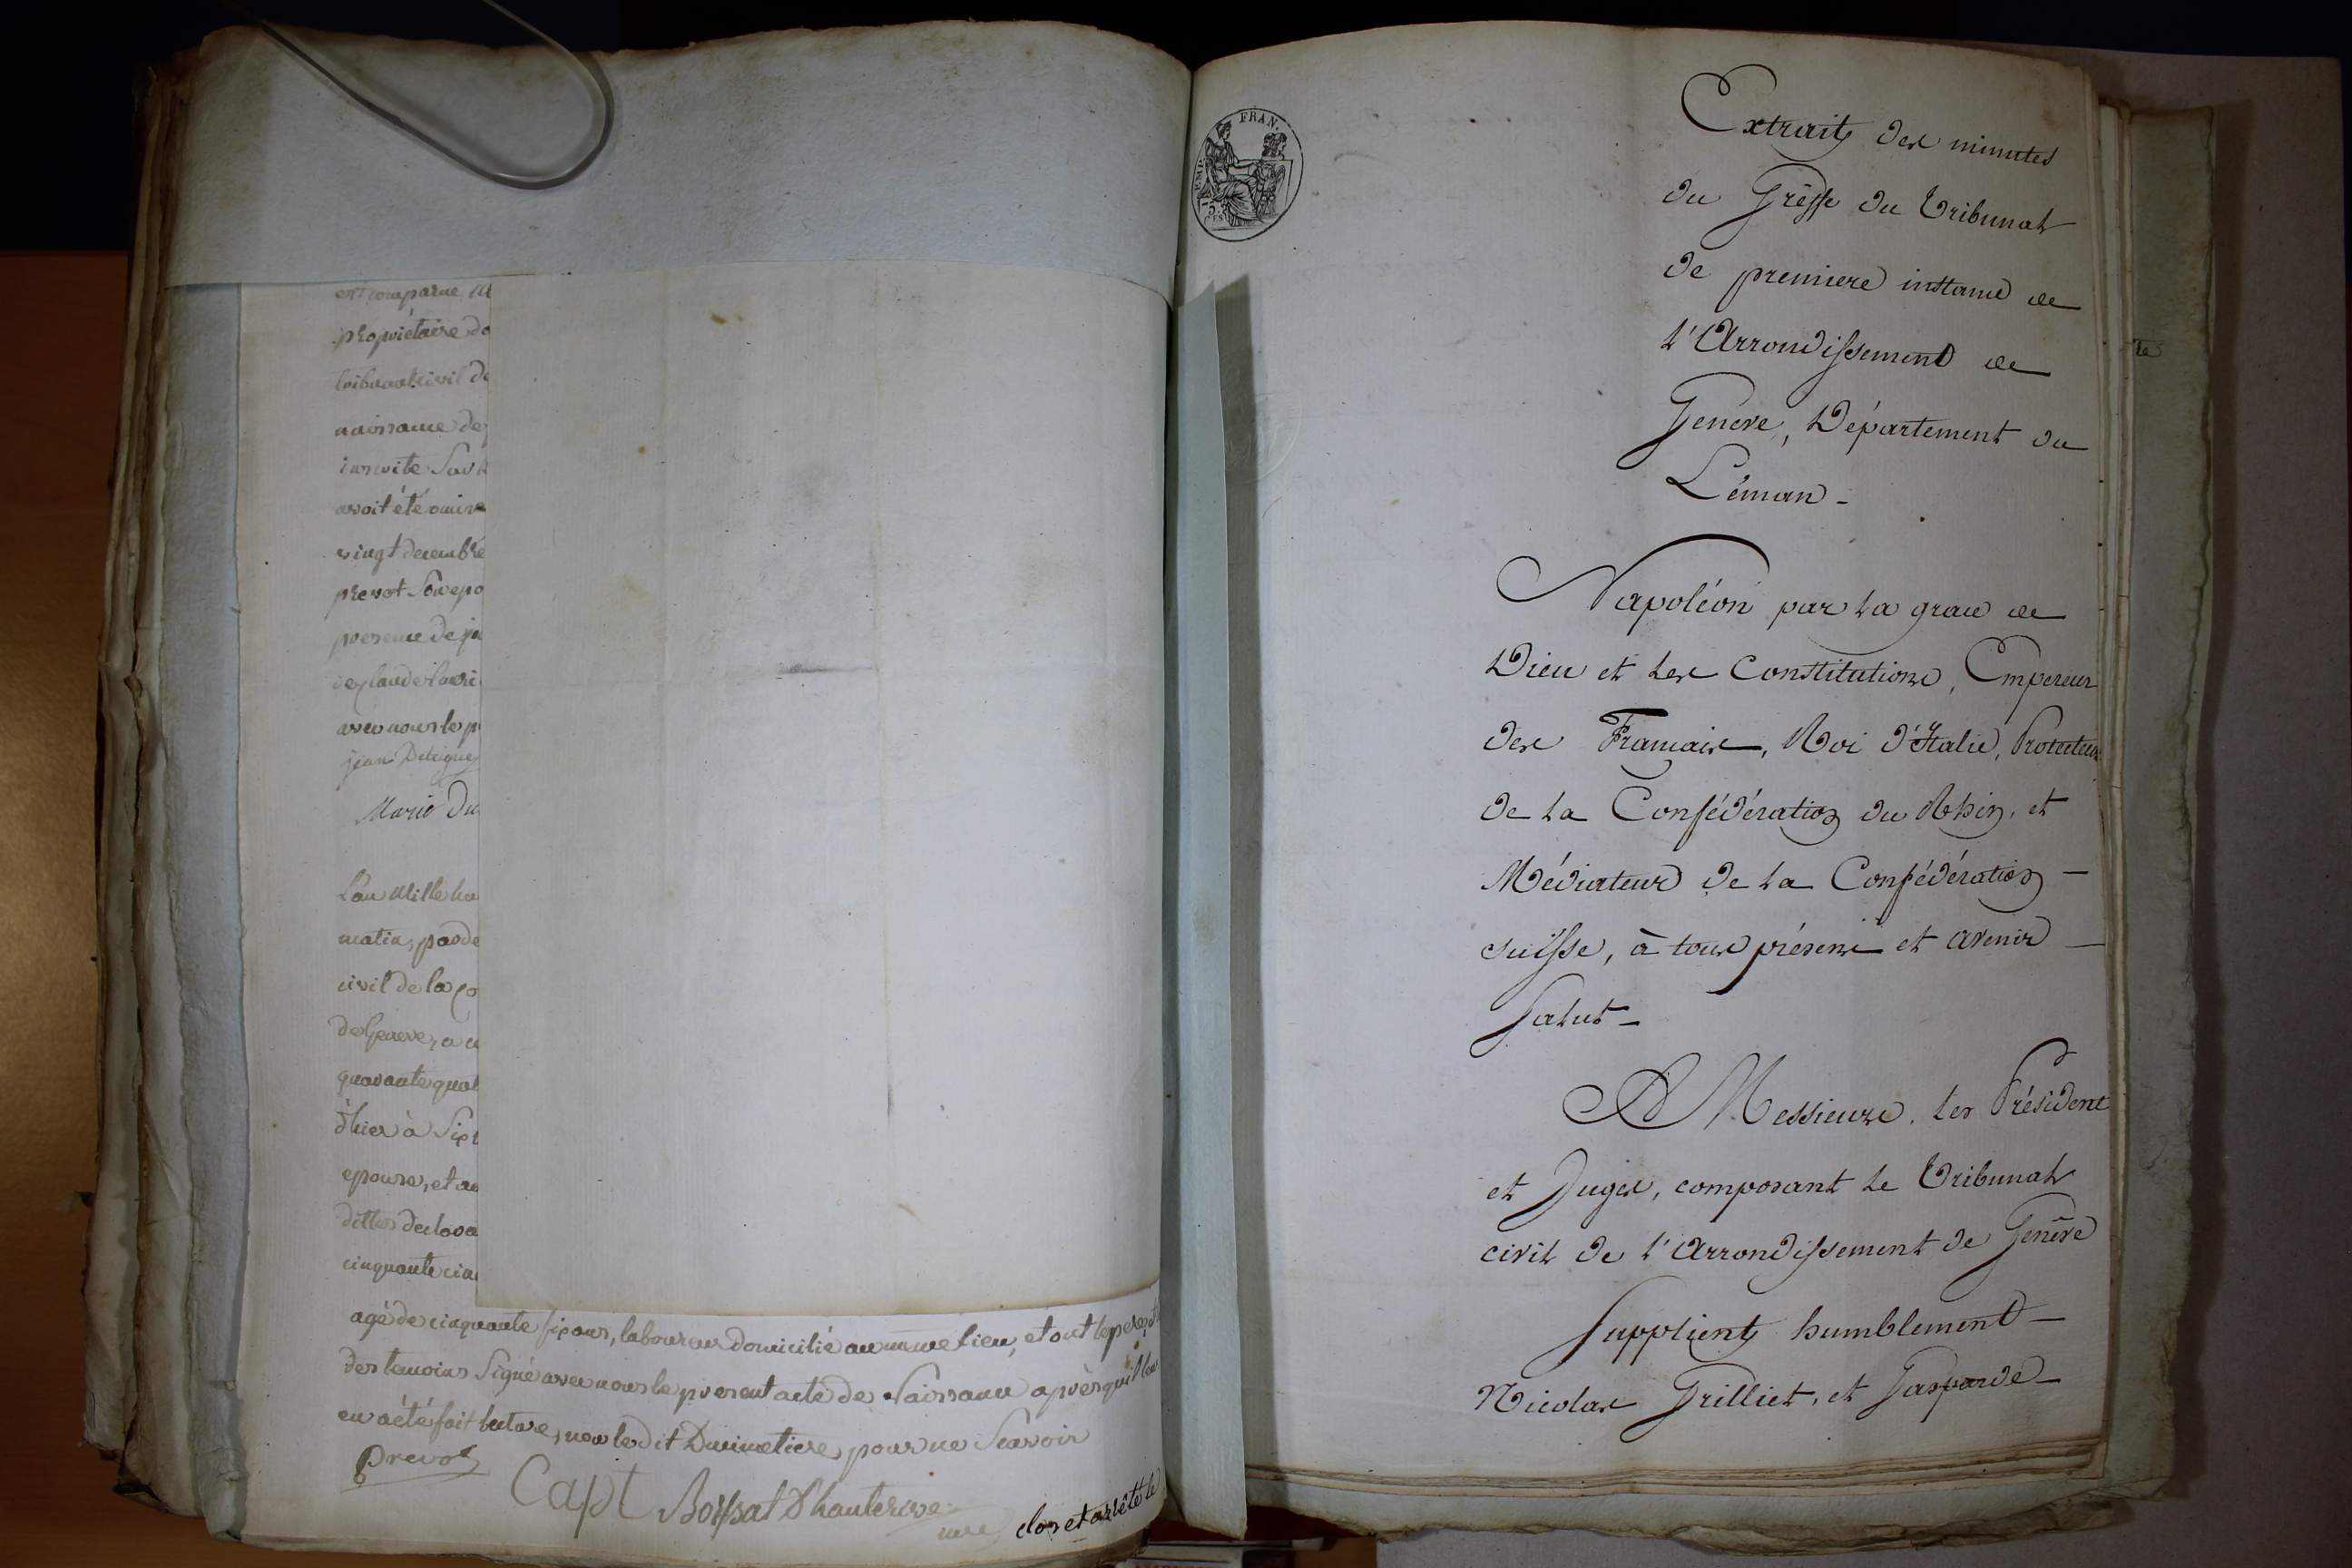 est comparue
propriétaire do
tribunal civil de
naissance de
inscrite Sur
avoit été omise
vingt decembre
prevot Son epo
presence de
avec nous le p
jean
Marie Du
L'an Mille hu
matin, parde
civil de la Co
de Geneve, a
quarante quat
d'hier à Sept
epouse, et au
dittes declara
cinquante cin
agé de cinquante six ans, laboureur domicilié au meme lieu, et ont le pere, et
des temoins Signé avec nous le present acte de Naissance après qu'il leur
en a été fait lecture, non le dit Dusimetiere pour ne Scavoir
Prevot
Capt Boissat D'hauterive
clos et arrêté le
EMP. FRAN.
Extrait des minutes
du Greffe du Tribunal
de premiere instance de
l'Arrondissement de
Geneve, Département du
Léman -
Napoléon par la grace de
Dieu et les Constitutions, Empereur
des Francais, Roi d'Italie, Protecteur
de la Confédération du Rhin, et
Médiateur de la Confédération -
suisse, à tous présens et avenir -
Salut -
A Messieurs, les Président
et Juges, composant le Tribunal
civil de l'Arrondissement de Genêve
Supplient humblement -
Nicolas Grilliet, et Gasparde -